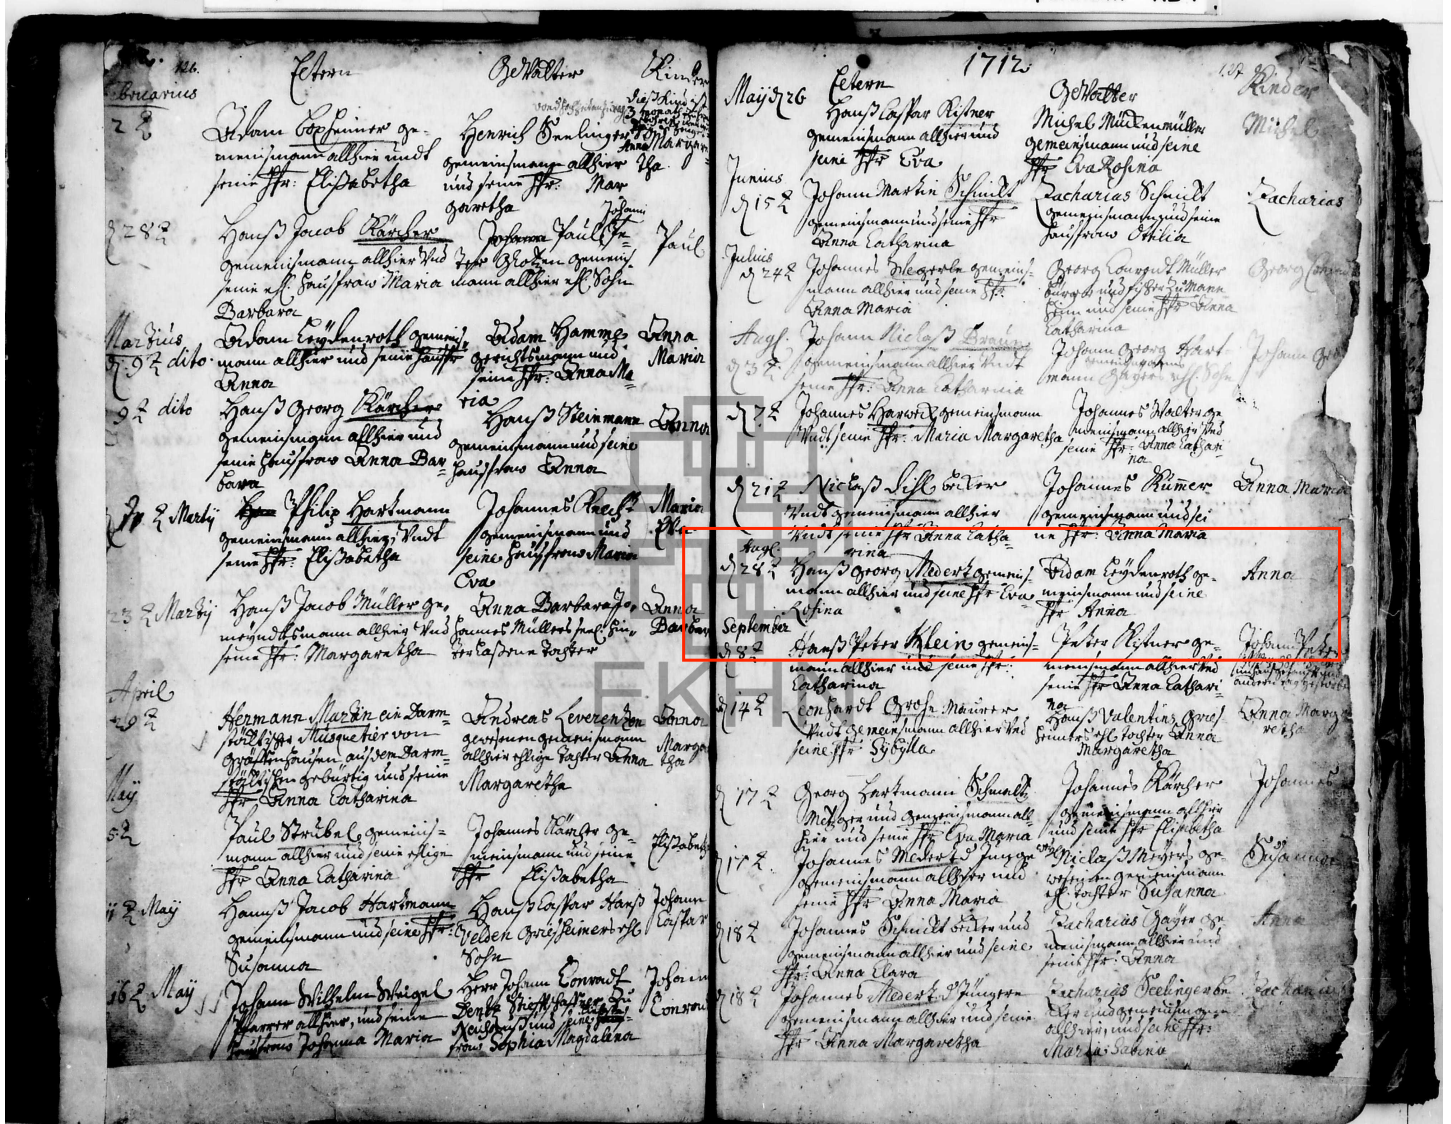 126.
Eltern
GeVatter
Kinder
bruarius
Adam boxheimer ge-
meinsmann allhier undt
seine hfr: Elisabetha
Henrich Seelinger
gemeinsmann allhier
und seine hfr: Mar
garetha
Anna Margare-
tha
28
Hanß Jacob Kärcher
gemeinsmann allhier Und
seine ehl: haussfraw Maria
Barbara
Johann
Paul Pe-
ter gemeins-
mann allhier ehl. Sohn
Paul
Martius
9 dito
Adam Leydenroth gemeins-
mann allhier und seine haussfr
Anna
Adam Hamme
gerichtsmann und
seine hfr: Anna Ma-
ria
Anna
Maria
9 dito
Hanß Georg Kärcher
gemeinsmann allhier und
seine haussfraw Anna Bar-
bara
Hanß Steinmann
gemeinsmann und seine
haussfraw Anna
Anna
Marty
Philip Hartmann
gemeinsmann allhier, Undt
seine hfr: Elisabetha
Johannes Knecht
gemeinsmann und
seine haussfraw Maria
Eva
Maria
Eva
23 Marty
Hanß Jacob Müller ge-
meyndtsmann allhier Und
seine hfr: Margaretha
Anna Barbara Jo-
hannes Müllers seel. hin-
terlassene tochter
Anna
Barbar
April
29
Hermann Martin ein Darm-
stättischer Musquetier von
Gräffenhausen, aus dem Darm-
stättischen gebürtig und seine
hfr: Anna Catharina
Andreas Leverentzen
gewesenen gemeinsmann
allhier ehlige tochter Anna
Margaretha
Anna
Marga
tha
May
5
Paul Strubel, gemeins-
mann allhier und seine ehlige
hfr Anna Catharina
Johannes Kärcher ge-
meinsmann und seine
hfr Elisabetha
Elisabeth
11 May
Hannß Jacob Hartmann
gemeinsmann und seine hfr:
Susanna
Hanß Caspar Hanß
Velden Griesheimers ehl
Sohn
Johann
Caspar
16 May
Johann Wilhelm Weigel
Pfarrer allhier, und seine
haussfraw Johanna Maria
Herr Johann Conradt
Neuschloß und seine hauss-
fraw Sophia Magdalena
Johann
Conrad
1712
127
Eltern
GeVatter
Kinder
May d 26
Hanß Caspar Kistner
gemeinsmann allhier und
seine hfr Eva
Michel Mückenmüller
gemeinsmann und seine
hfr Eva Rosina
Michel
Junius
d 15
Johann Martin Schmidt
gemeinsmann und seine hfr
Anna Catharina
Zacharias Schmidt
gemeinsmann und seine
haussfraw Otilia
Zacharias
Julius
d 24
Johannes Megerle gemeins-
mann allhier und seine hfr:
Anna Maria
Georg Conradt Müller
burger und fischer zu Mann
heim und seine hfr Anna
Catharina
Georg Conrad
Augl.
d 3
Johann Niclaß Braun
gemeinsmann allhier Undt
seine hfr: Anna Catharina
Johann Georg Hart-
mann
ehl. Sohn
Johann Geo
d 7
Johannes Harweck gemeinsmann
Undt seine hfr: Maria Margaretha
Johannes Walter ge
meinsmann allhier Und
seine hfr: Anna Cathari-
na
d 21
Niclaß Diehl becker
Undt gemeinsmann allhier
Undt seine hfr Anna Catha-
rina
Johannes Kumer
gemeinsmann und sei
ne hfr: Anna Maria
Anna Maria
Augl.
d 28
Hanß Georg Medert gemeins-
mann allhier und seine hfr Eva
Rosina
Adam Leydenroth ge-
meinsmann und seine
hfr Anna
Anna
September
d 8
Hanß Peter Klein gemeins-
mann allhier und seine hfr:
Catharina
Peter Kistner ge-
meinsmann allhier Und
seine hfr Anna Cathari-
na
Johann Peter
d 14
Leonhardt Grohe Maurer
Undt gemeinsmann allhier Und
seine hfr Sybylla
Hanß Valentins Gries-
heimers ehl. tochter Anna
Margaretha
Anna Marga
retha
d 17
Georg Hartmann Schmaltz
Metzger und gemeinsmann all-
hier und seine hfr Eva Maria
Johannes Kärcher
gemeinsmann allhier
und seine hfr Elisabetha
Johannes
d 17
Johannes Medert d Junge
gemeinsmann allhier und
seine hfr Anna Maria
Niclaß Meyers ge-
wesenen gemeinsmann
ehl. tochter Susanna
Susanna
d 18
Johannes Schmidt becker und
gemeinsmann allhier und seine
hfr: Anna Clara
Zacharias Gayer ge-
meinsmann allhier und
seine hfr: Anna
Anna
d 18
Johannes Medert d Jüngere
gemeinsmann allhier und seine
hfr Anna Margaretha
Zacharias Seelinger be
cker und gemeinsmann
allhier, und seine hfr:
Maria Sabina
Zacharias
EKHN